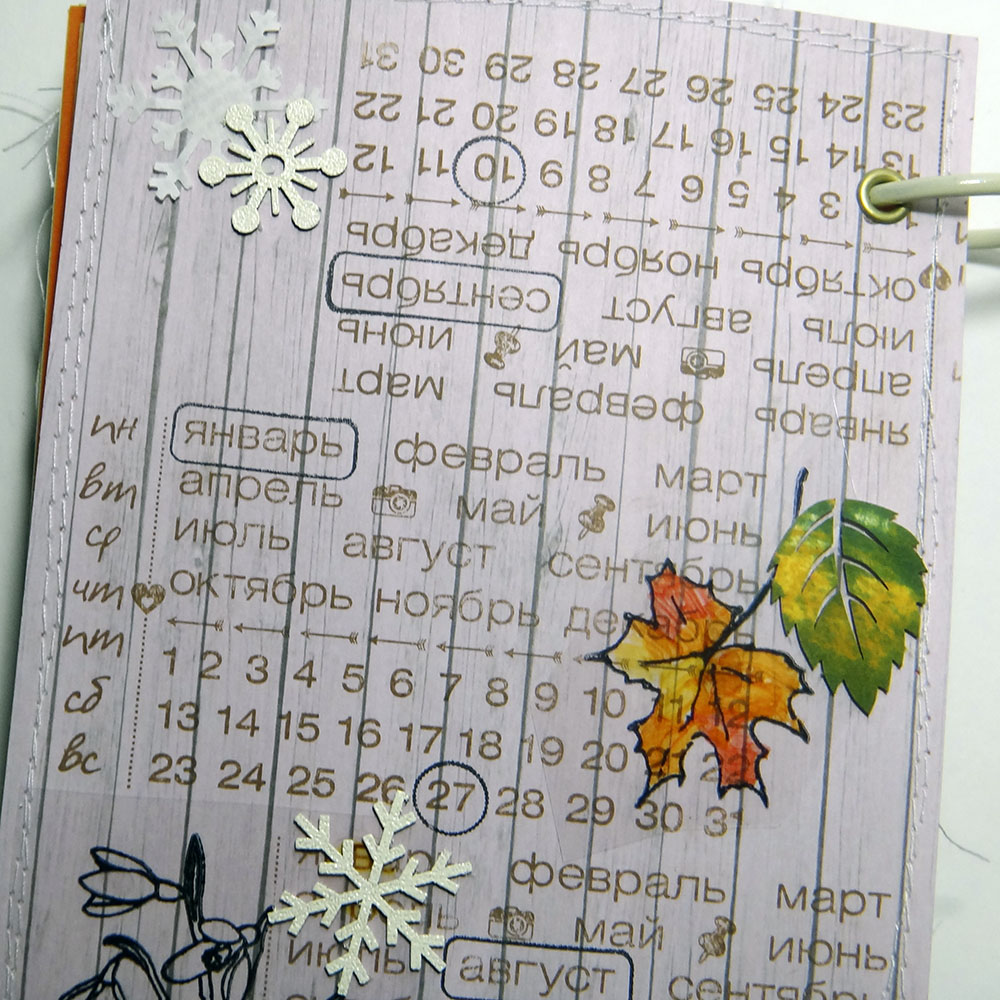 январь февраль март
апрель май июнь
июль август сентябрь
октябрь ноябрь декабрь
1 3 4 5 6 7 8 9 10 11 12
13 14 15 16 17 18 19 20 21 22
23 24 25 26 27 28 29 30 31
пн
вт
ср
чт
пт
сб
вс
январь февраль март
апрель май июнь
июль август сентябрь
октябрь ноябрь декабрь
1 2 3 4 5 6 7 8 9 10 11 12
13 14 15 16 17 18 19 20 21 22
23 24 25 26 27 28 29 30 31
февраль март
май июнь
июль август сентябрь